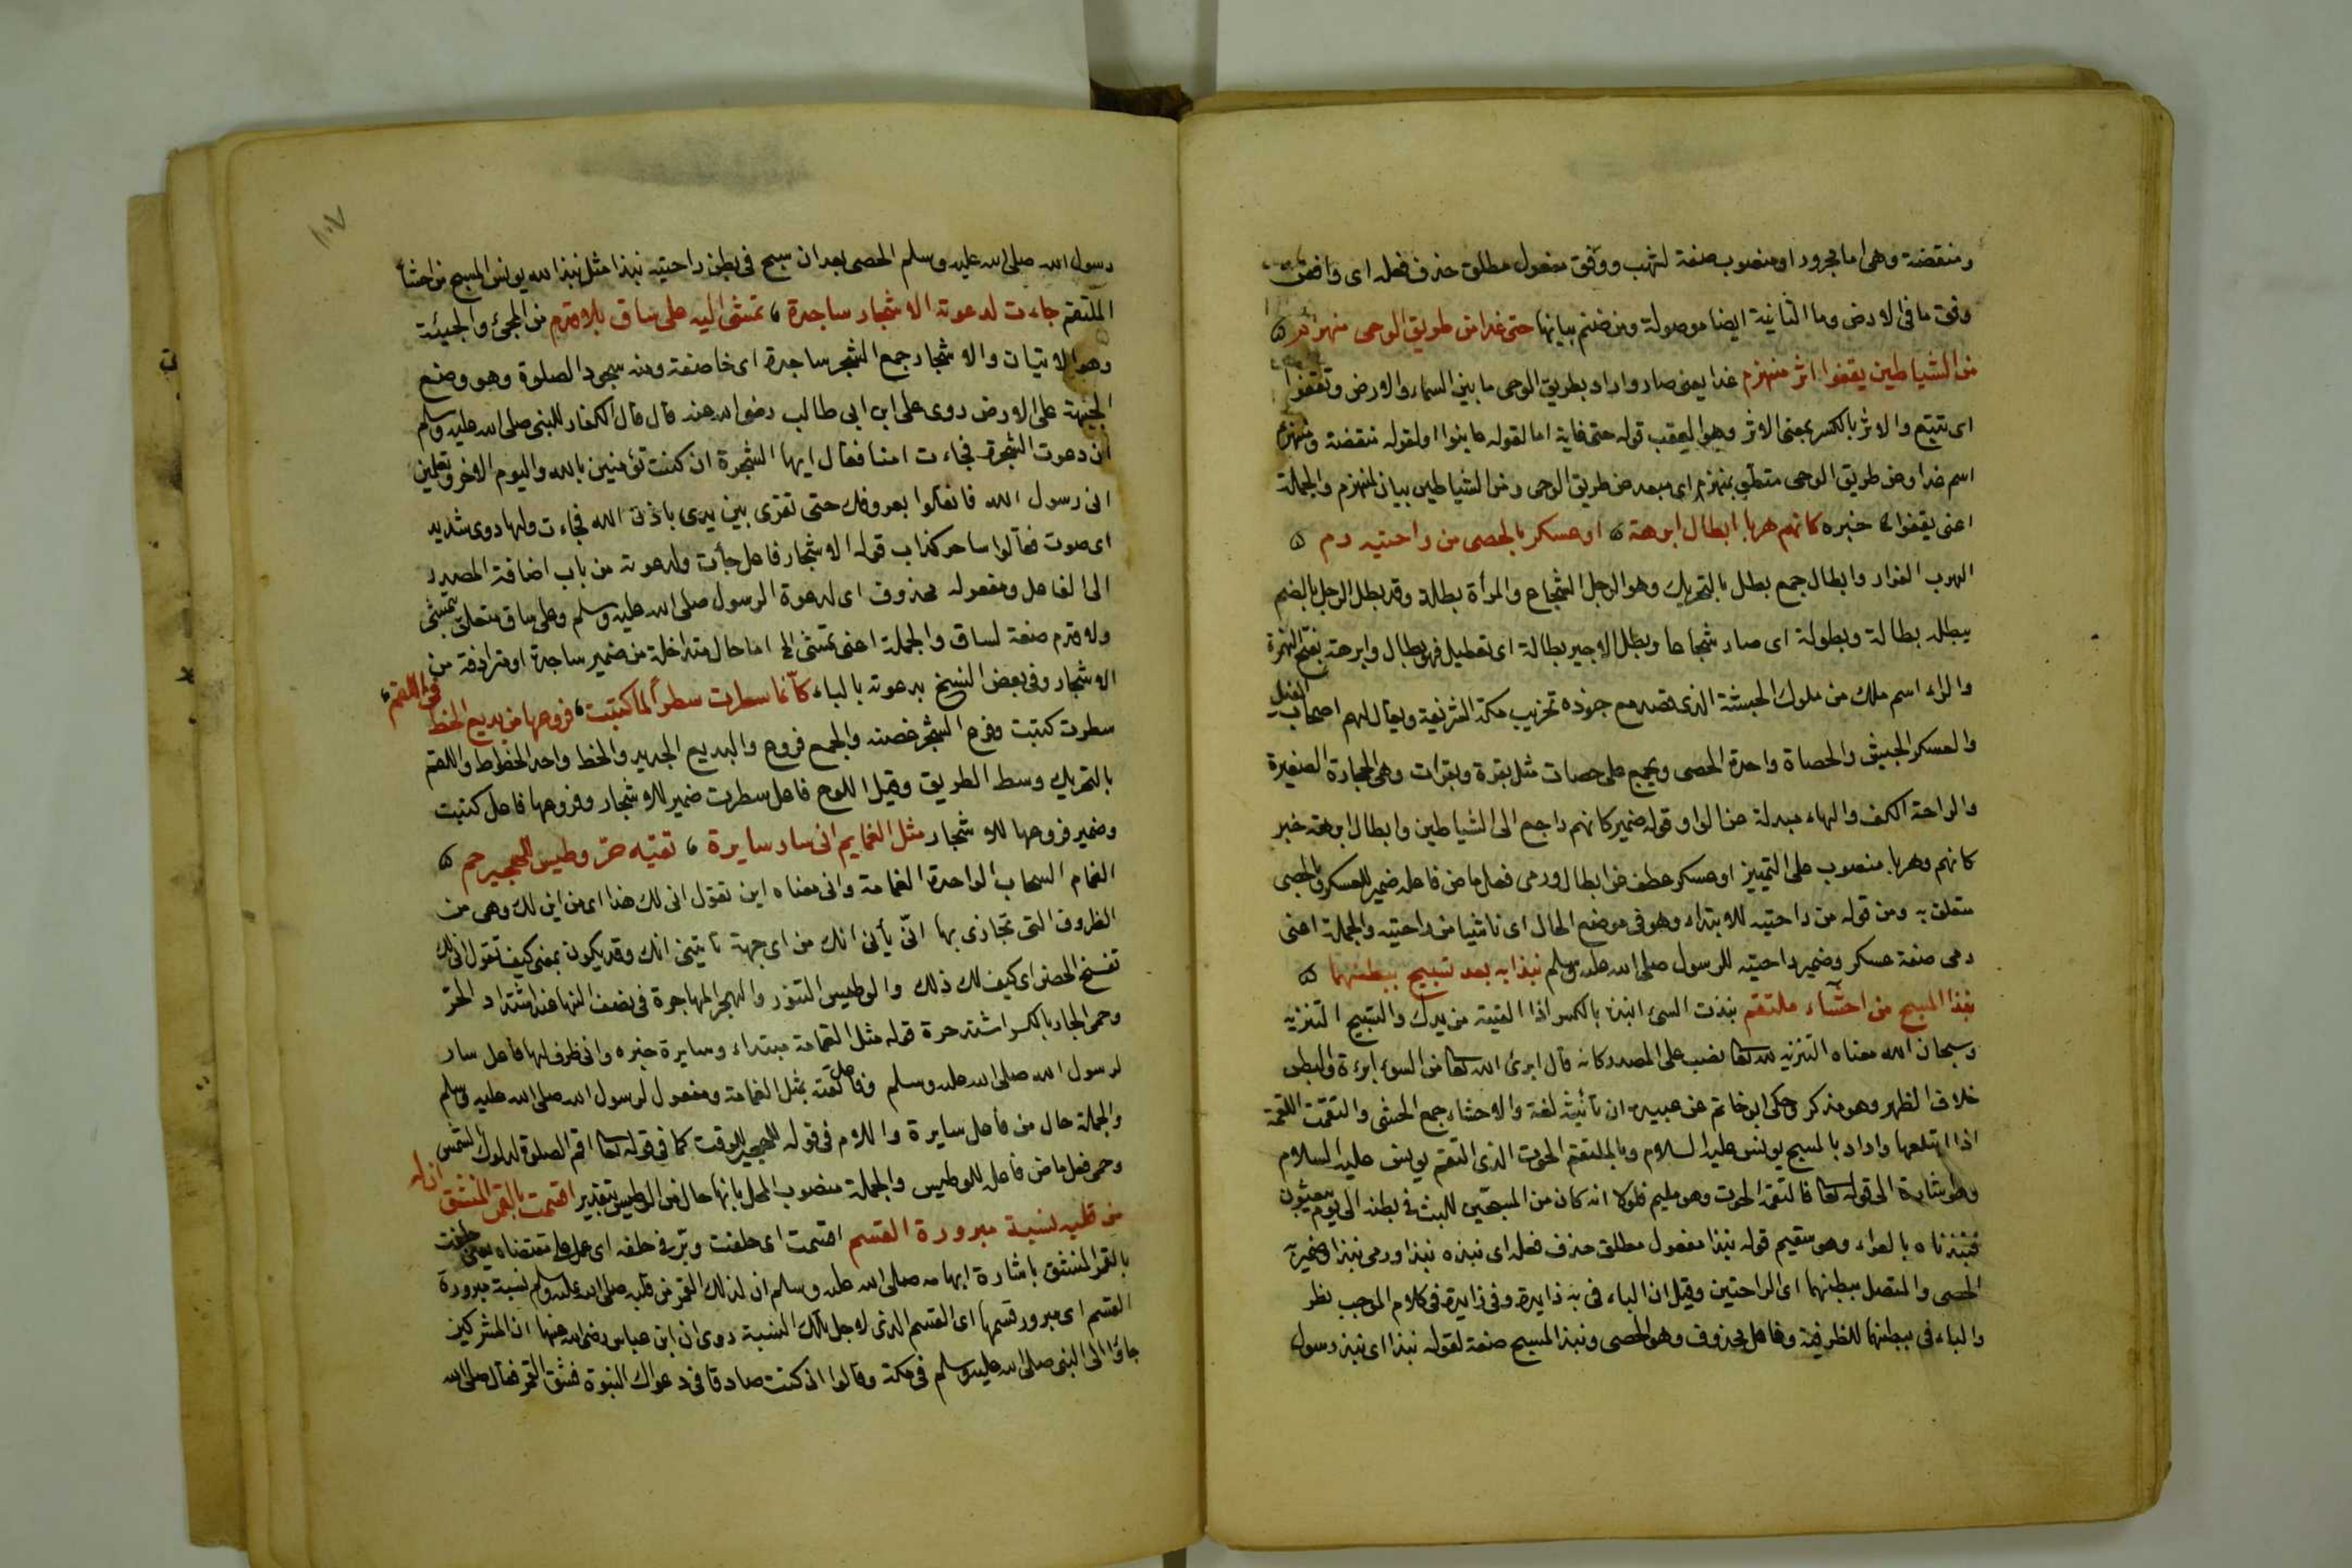 ومنقضة وهى اما مجرور او منصوب صفة لشهب ووفق مفعول مطلق حذف فعله اى وافقت
وفق ما فى الارض وما الثانية ايضا موصولة ومن صنم بيانها حتى غدا عن طريق الوحى منهزم
من الشياطين يقفوا اثر منهزم غدا يعنى صار واراد بطريق الوحى ما بين السماء والارض وتقفوا
اى تتبع والاثر بالكسر بمعنى الاثر وهو العقب قوله حتى غاية اما لقوله عاينوا او لقوله منقضة ومنهزم
اسم غدا وعن طريق الوحى متعلق بمنهزم اى مبعد عن طريق الوحى ومن الشياطين بيان لمنهزم والجملة
اعنى يقفوا الخ خبره كانهم هربا ابطال ابرهة او عسكر بالحصى من راحتيه رم
الهرب الفرار وابطال جمع بطل بالتحريك وهو الرجل الشجاع والمرأة بطلة وقد بطل الرجل بالضم
يبطل بطالة وبطولة اى صار شجاعا وبطل الاجير بطالة اى تعطيل فهو بطال وابرهة بفتح الهمزة
والراء اسم ملك من ملوك الحبشة الذى قصد مع جنوده تخريب مكة الشريفة ويقال لهم اصحاب الفيل
والعسكر الجيش والحصاة واحدة الحصى ويجمع على حصات مثل بقرة وبقرات وهى الحجارة الصغيرة
والراحة الكف والهاء مبدلة عن الواو قوله ضمير كانهم راجع الى الشياطين وابطال ابرهة خبر
كانهم وهربا منصوب على التمييز او عسكر عطف عن ابطال ورمى فعل ماض فاعله ضمير للعسكر وبالحصى
متعلق به ومن قوله من راحتيه للابتداء وهو فى موضع الحال اى ناشيا من راحتيه والجملة اعنى
رمى صفة عسكر وضمير راحتيه للرسول صلى الله عليه وسلم نبذا به بعد تسبيح ببطنهما
نبذ المسبح من احشاء ملتقم نبذت الشئ انبذ بالكسر اذا القيته من يدك والتسبيح التنزيه
وسبحان الله معناه التنزيه لله تعا نصب على المصدر كانه قال ابرئ الله تعا من السوء ابرءة والبطن
خلاف الظهر وهو مذكر وحكى ابو خاتم عن عبيدة ان تأنيثه لغة والاحشاء جمع الحشى والتقمت اللقمة
اذا ابتلعها واراد بالمسبح يونس عليه السلام وبالملتقم الحوت الذى التقم يونس عليه السلام
وهو شارة الى قوله تعا فالتقمه الحوت وهو مليم فلولا انه كان من المسبحين للبث فى بطنه الى يوم يبعثون
فنبذناه بالعراء وهو سقيم قوله نبذا مفعول مطلق حذف فعله اى نبذه نبذا او رمى نبذا وضمير به
الحصى والمتصل ببطنهما اى الراحتين وقيل ان الباء فى به زايدة وفى زايدة فى كلام الموجب نظر
والباء فى ببطنهما للظرفية وفاعل محذوف وهو الحصى ونبذ المسبح صفة لقوله نبذا اى نبذ رسول
١٠٧
رسول الله صلى الله عليه وسلم الحصى بعد ان سبح فى بطن راحتيه نبذا مثل نبذ الله يونس المسبح من احشاء
الملتقم جاءت لدعوته الاشجار ساجدة تمشى اليه على ساق بلا قدم من المجئ والجيئة
وهو الاتيان والاشجار جمع الشجر ساجدة اى خاضعة ومنه سجود الصلوة وهو وضع
الجبهة على الارض روى على ابن ابى طالب رضى الله عنه قال قال الكفار للنبى صلى الله عليه وسلم
ان دعوت الشجرة فجاءت امنا فقال ايها الشجرة ان كنت تؤمنين بالله واليوم الاخر وتعلمين
انى رسول الله فانقلعوا بعروقك حتى تقرى بين يدى باذن الله فجاءت ولها دوى شديد
اى صوت فقالوا ساحر كذاب قوله الاشجار فاعل جاءت ولدعوته من باب اضافة المصدر
الى الفاعل ومفعوله محذوف اى لدعوة الرسول صلى الله عليه وسلم وعلى ساق متعلق بتمشى
ولا قدم صفة لساق والجملة اعنى تمشى الخ اما حال متداخلة من ضمير ساجدة او مترادفة من
الاشجار وفى بعض النسخ بدعوته بالباء كأنما سطرت سطرا لما كتبت فروعها من بديع الخط فى اللقم
سطرت كتبت وفرع الشجر غصنه والجمع فروع والبديع الجديد والخط واحد الخطوط واللقم
بالتحريك وسط الطريق وقيل اللوح فاعل سطرت ضمير للاشجار وفروعها فاعل كتبت
وضمير فروعها للاشجار مثل الغمايم انى سار سايرة تقيه حر وطيس للهجير حم
الغمام السحاب الواحدة الغمامة وانى معناه اين تقول انى لك هذا اى من اين لك وهى من
الظروف التى تجازى بها انى يأتى انك من اى جهة تأتينى اتك وقد يكون بمعنى كيف تقول انى لك
تفتح الحصن اى كيف لك ذلك والوطيس التنور والهجر المهاجرة فى نصف النهار عند اشتداد الحر
وحمى الجار بالكسر اشتد حره قوله مثل الغمامة مبتداء وسايرة خبره وانى ظرف لها فاعل سار
لرسول الله صلى الله عليه وسلم وفاعل تقيه مثل الغمامة ومفعول لرسول الله صلى الله عليه وسلم
والجملة حال من فاعل سايرة واللام فى قوله للهجير للوقت كما فى قوله تعا اقم الصلوة لدلوك الشمس
وحمى فعل ماض فاعله للوطيس والجملة منصوب المحل بانها حال من الوطيس بتقدير اقسمت بالقمر المنشق ان له
من قلبه نسبة مبرورة القسم اقسمت اى حلفت وبر فى حلفه اى عمل على مقتضاه يعنى حلفت
بالقمر المنشق باشارة ابهامه صلى الله عليه وسلم ان لذلك القمر من قلبه صلى الله عليه وسلم نسبة مبرورة
القسم اى مبرور قسمها اى القسم الذى لاجل تلك النسبة روى ان ابن عباس رضى الله عنهما ان المشركين
جاؤا الى النبى صلى الله عليه وسلم فى مكة وقالوا ان كنت صادقا فى دعواك النبوة فشق القمر فقال صلى الله